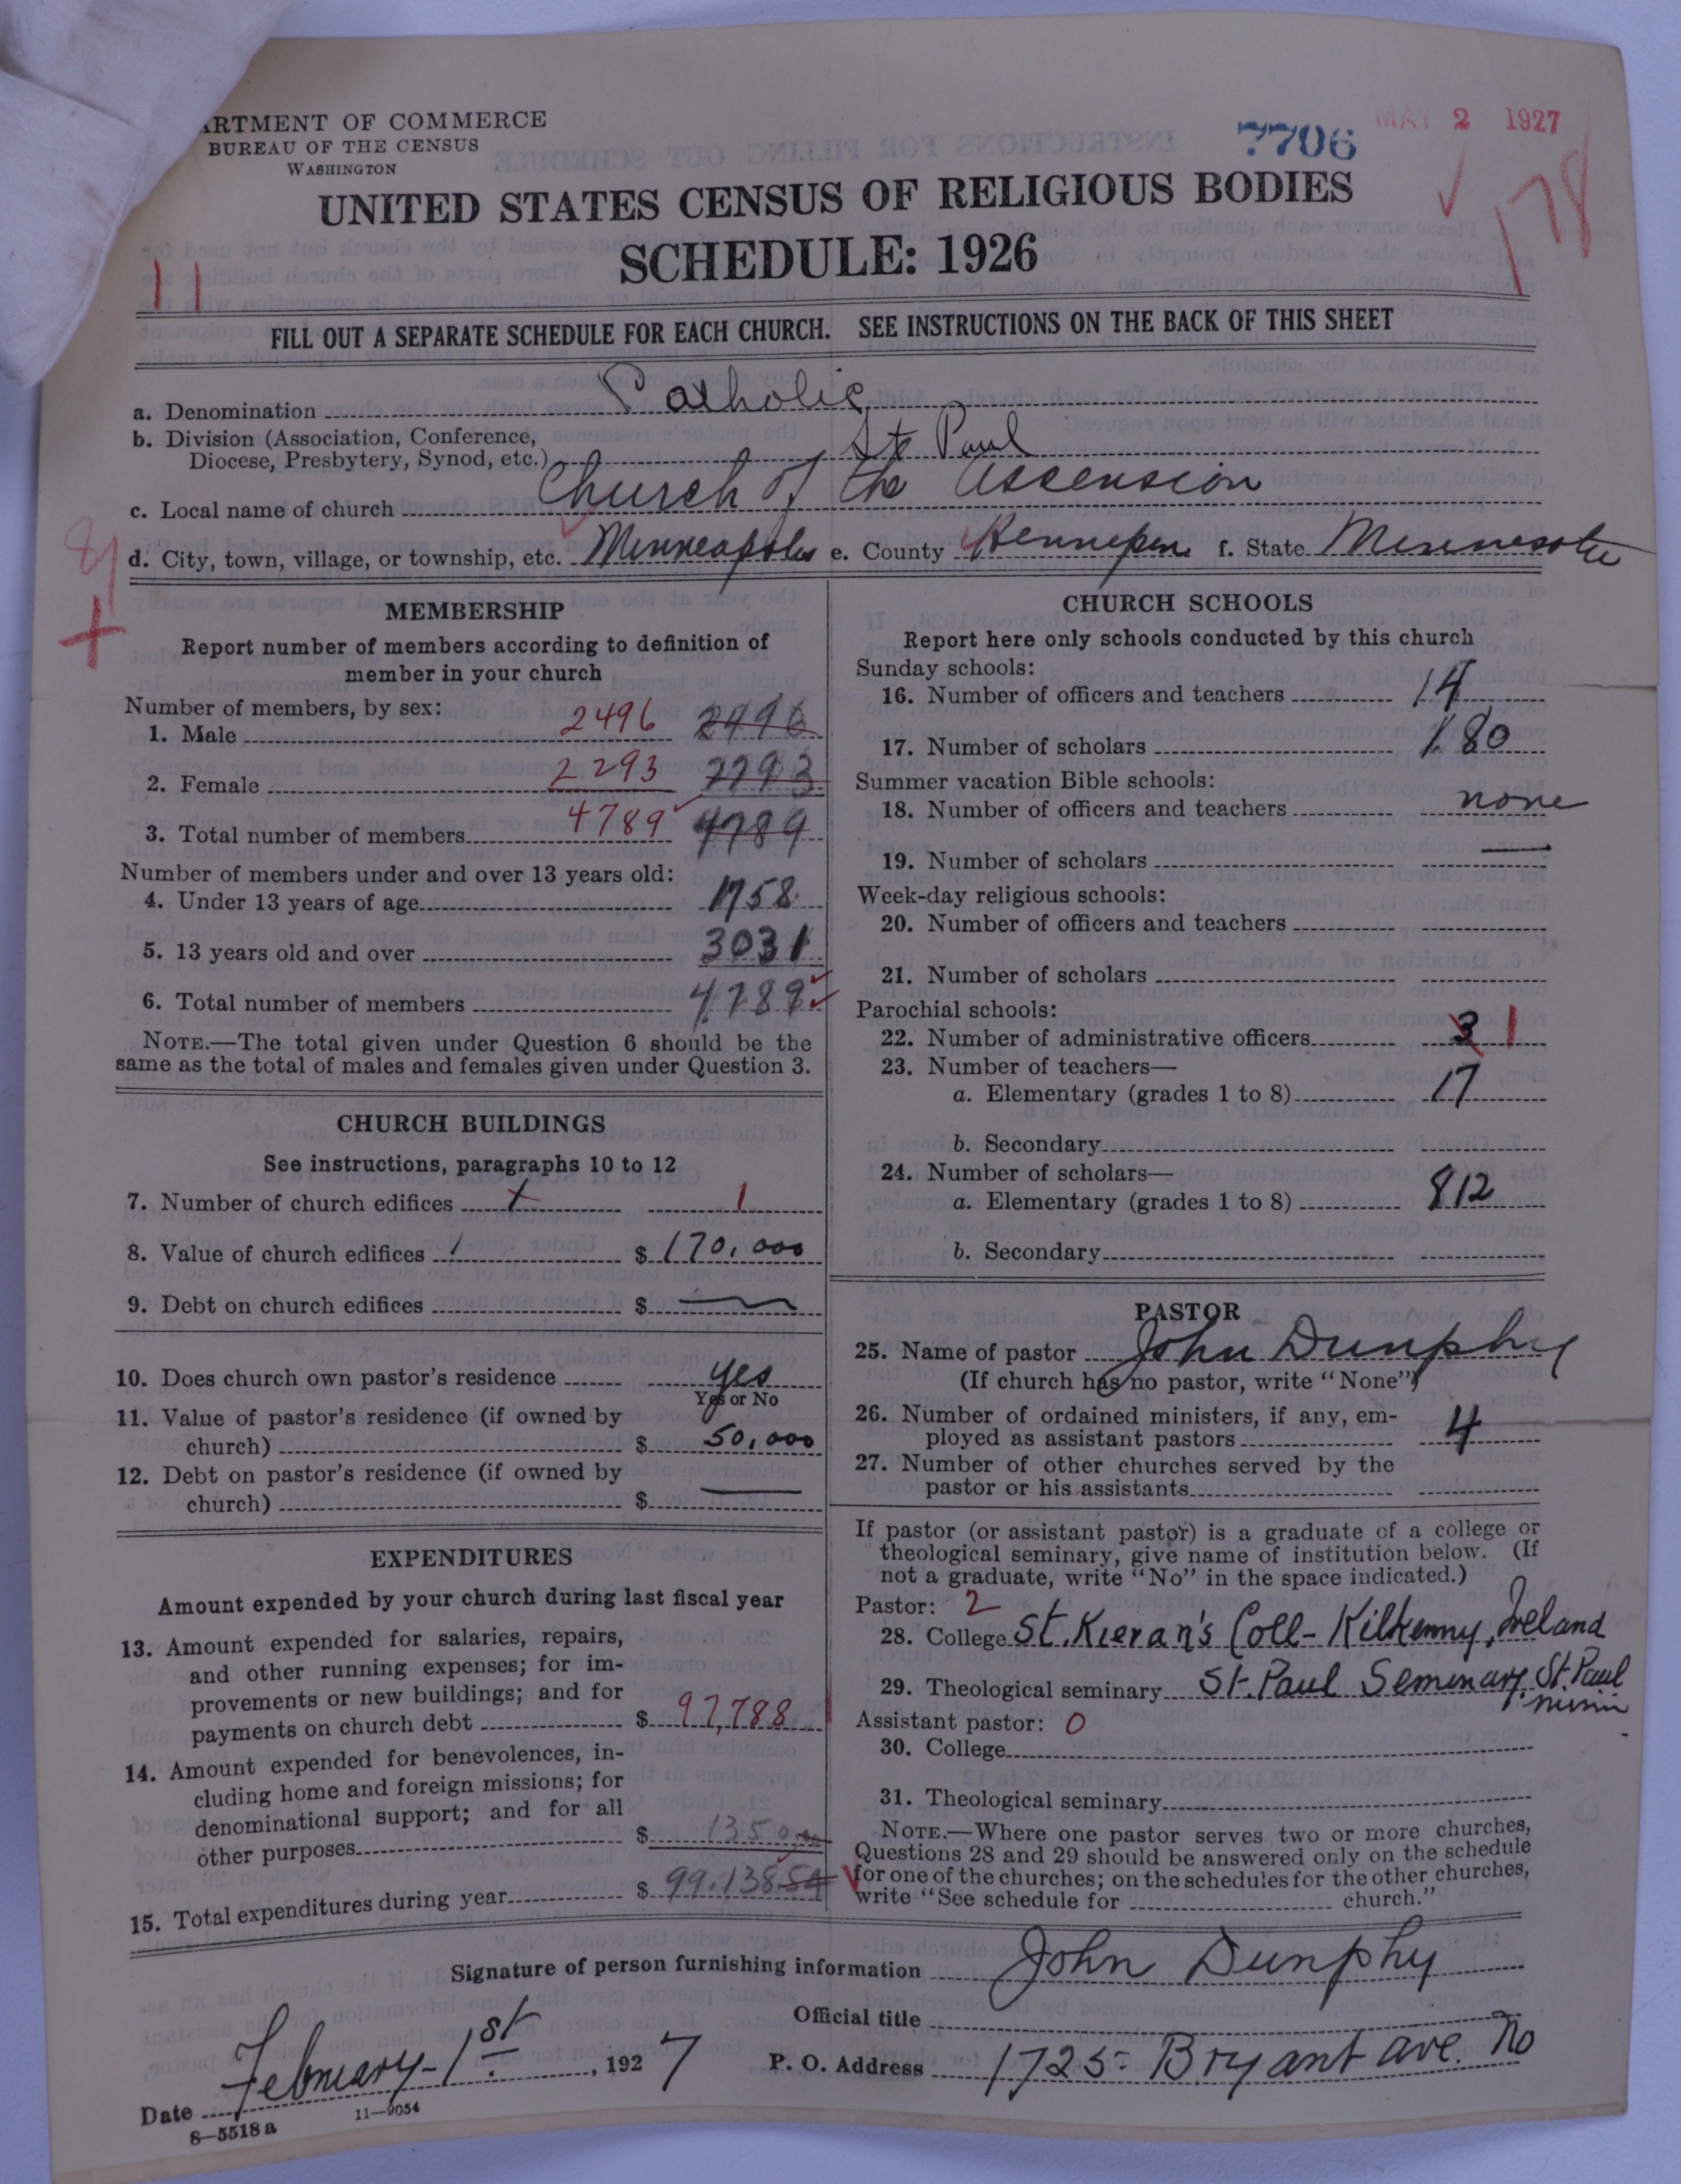 ARTMENT OF COMMERCE
BUREAU OF THE CENSUS
WASHINGTON
7706
MAY 2 1927
178
UNITED STATES CENSUS OF RELIGIOUS BODIES
SCHEDULE: 1926
11
FILL OUT A SEPARATE SCHEDULE FOR EACH CHURCH. SEE INSTRUCTIONS ON THE BACK OF THIS SHEET
a. Denomination Catholic
b. Division (Association, Conference,
Diocese, Presbytery, Synod, etc.) St Paul
c. Local name of church Church of the Ascension
d. City, town, village, or township, etc. Minneapolis e. County Hennepin f. State Minnesota
MEMBERSHIP
Report number of members according to definition of
member in your church
Number of members, by sex:
1. Male 2496 2496
2. Female 2293 2293
3. Total number of members 4789 4789
Number of members under and over 13 years old:
4. Under 13 years of age 1758
5. 13 years old and over 3031
6. Total number of members 4789
NOTE.—The total given under Question 6 should be the
same as the total of males and females given under Question 3.
CHURCH BUILDINGS
See instructions, paragraphs 10 to 12
7. Number of church edifices 1 1
8. Value of church edifices 1 $ 170,000
9. Debt on church edifices $ —
10. Does church own pastor's residence yes
Yes or No
11. Value of pastor's residence (if owned by
church) $ 50,000
12. Debt on pastor's residence (if owned by
church) $ —
EXPENDITURES
Amount expended by your church during last fiscal year
13. Amount expended for salaries, repairs,
and other running expenses; for im-
provements or new buildings; and for
payments on church debt $ 97,788
14. Amount expended for benevolences, in-
cluding home and foreign missions; for
denominational support; and for all
other purposes $ 1350.00
15. Total expenditures during year $ 99.138.54
CHURCH SCHOOLS
Report here only schools conducted by this church
Sunday schools:
16. Number of officers and teachers 14
17. Number of scholars 180
Summer vacation Bible schools:
18. Number of officers and teachers none
19. Number of scholars —
Week-day religious schools:
20. Number of officers and teachers
21. Number of scholars
Parochial schools:
22. Number of administrative officers 3 1
23. Number of teachers—
a. Elementary (grades 1 to 8) 17
b. Secondary
24. Number of scholars—
a. Elementary (grades 1 to 8) 812
b. Secondary
PASTOR
25. Name of pastor John Dunphy
(If church has no pastor, write "None")
26. Number of ordained ministers, if any, em-
ployed as assistant pastors 4
27. Number of other churches served by the
pastor or his assistants
If pastor (or assistant pastor) is a graduate of a college or
theological seminary, give name of institution below. (If
not a graduate, write "No" in the space indicated.)
Pastor: 2
28. College St. Kieran's Coll- Kilkenny, Ireland
29. Theological seminary St. Paul Seminary, St. Paul
Minn
Assistant pastor: 0
30. College
31. Theological seminary
NOTE.—Where one pastor serves two or more churches,
Questions 28 and 29 should be answered only on the schedule
for one of the churches; on the schedules for the other churches,
write "See schedule for church."
Signature of person furnishing information John Dunphy
Official title
Date February-1st, 1927 P. O. Address 1725- Bryant ave. No
8—5518 a 11—9054